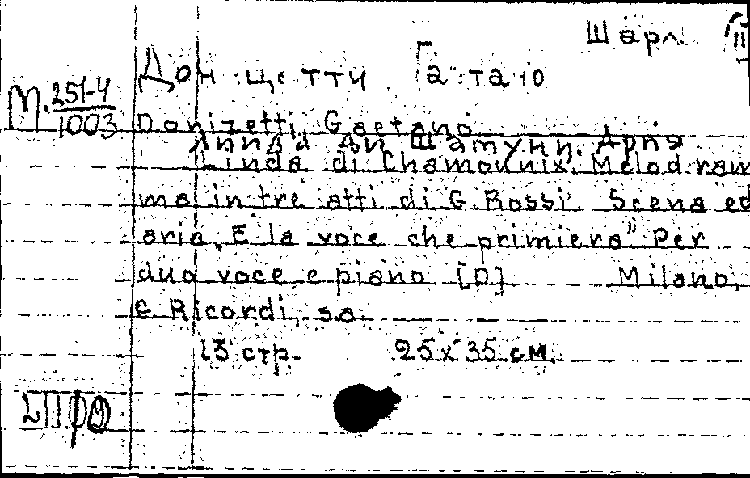 Шарл. III
Доницетти Гаетано
М. 251-4
1003
Donizetti, Gaetano
Линда ди Шамуни. Ария
Linda di Chamounix. Melodram
ma in tre atti di G. Rossi. Scena ed
aria „E la voce che primiera” Per
duo voce e piano [D] Milano,
G Ricordi, s.a.
13 стр. 25 x 35 см.